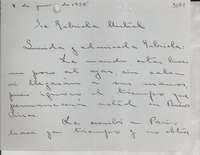 8 de junio de 1935
3074
Sra Gabriela Mistral
Querida y admirada Gabriela:
Le mando estas líneas
un poco al azar, sin saber
si llegarán a sus manos,
pues ignoro el tiempo que
permanecerá usted en Buenos
Aires.
Le escribí a París
hace ya tiempo y no obtuve